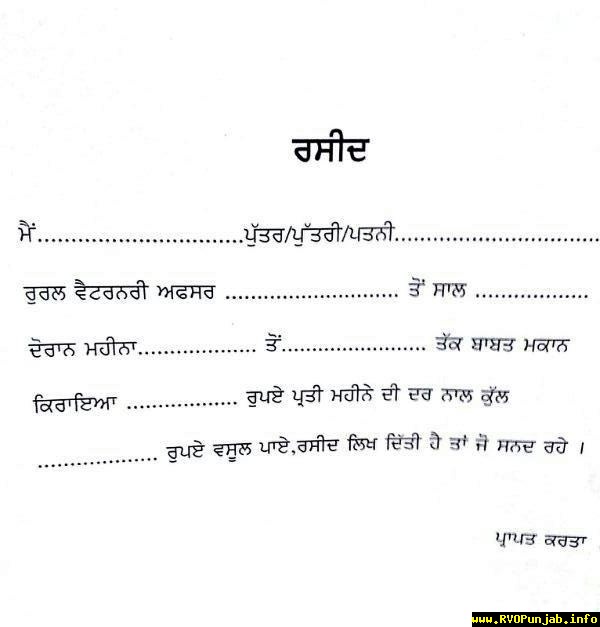 ਰਸੀਦ
ਮੈਂ...............................ਪੁੱਤਰ/ਪੁੱਤਰੀ/ਪਤਨੀ...............................
ਰੁਰਲ ਵੈਟਰਨਰੀ ਅਫਸਰ .......................... ਤੋਂ ਸਾਲ .................
ਦੋਰਾਨ ਮਹੀਨਾ.................. ਤੋਂ...................... ਤੱਕ ਬਾਬਤ ਮਕਾਨ
ਕਿਰਾਇਆ ................. ਰੁਪਏ ਪ੍ਰਤੀ ਮਹੀਨੇ ਦੀ ਦਰ ਨਾਲ ਕੁੱਲ
.................. ਰੁਪਏ ਵਸੂਲ ਪਾਏ,ਰਸੀਦ ਲਿਖ ਦਿੱਤੀ ਹੈ ਤਾਂ ਜੋ ਸਨਦ ਰਹੇ ।
ਪ੍ਰਾਪਤ ਕਰਤਾ
www.RVOPunjab.info